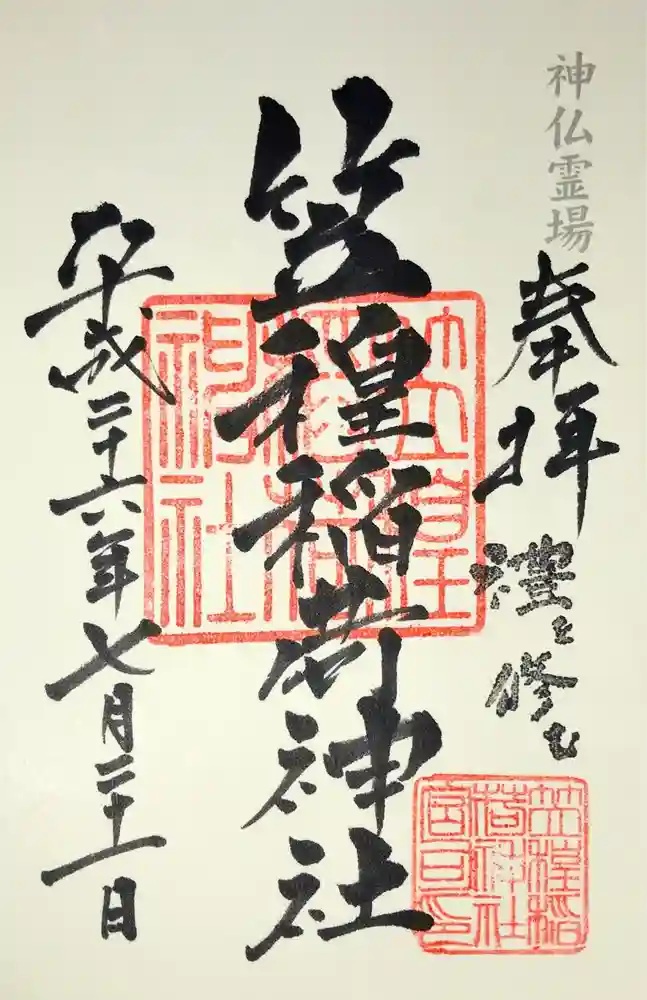 神仏霊場
奉拝
禮を修む
笠䅣稲荷神社
平成二十六年七月二十一日
笠䅣
稲荷
神社
笠䅣稲
荷神社
宮司印